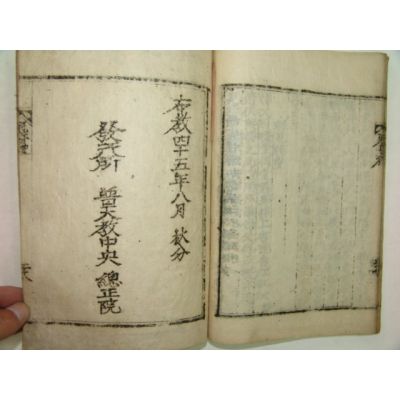 布教四十五年八月 秋分
發行所 普天教中央 總正院